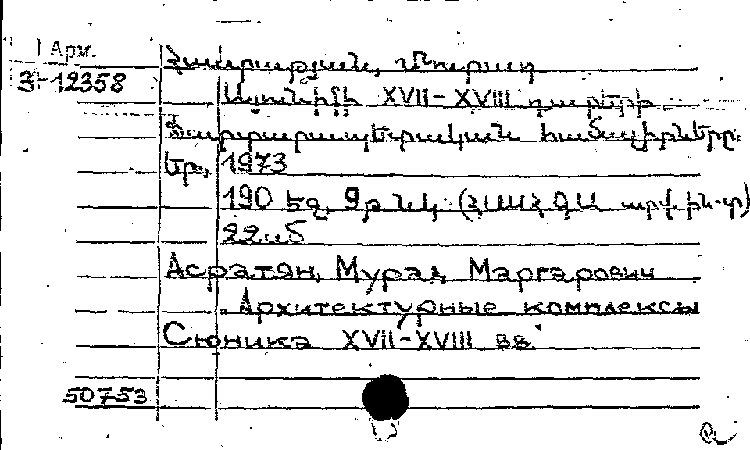 Арм.
3-12358
Հասրաթյան, Մուրադ
Սյունիքի XVII-XVIII դարերի
ճարտարապետական համալիրները.
Եր., 1973
190 էջ, 9թ նկ. (ՀՍՍՀ ԳԱ արվ. ին-տ)
22սմ
Асратян, Мурад Маргарович
Архитектурные комплексы
Сюника XVII-XVIII вв.
50753